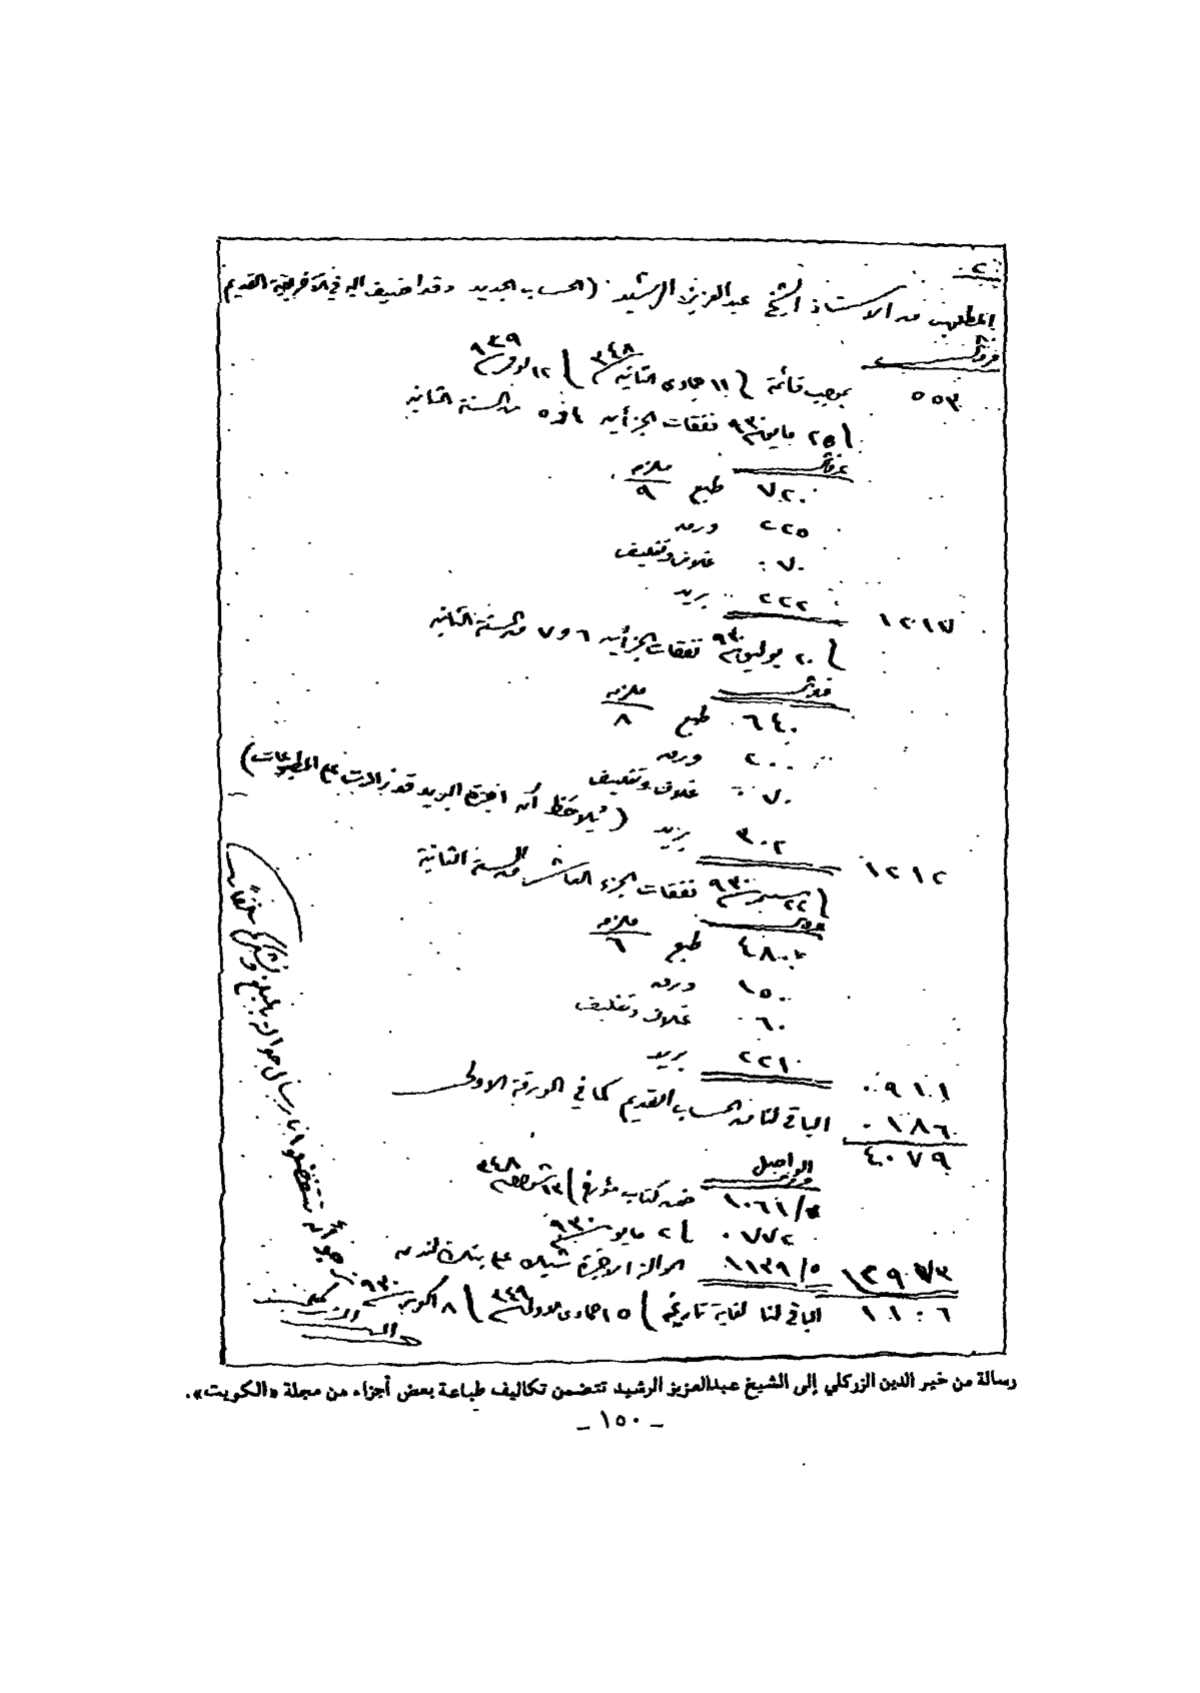 ـ ٢ ـ
المطلوب من الاستاذ الشيخ عبدالعزيز الرشيد (الحساب الجديد وقد اضيف اليه في الآخر بقية القديم
قروش
٥٥٣ بموجب قائمة ١١ جمادى الثانية ٣٤٨ ) ١٢ نوفمبر ٩٢٩
٢٥ مايو ٩٣٠ نفقات الجزأين ٤ و ٥ من السنة الثانية
قروش
٧٢٠ طبع ملازم ٩
٢٢٥ ورق
٠٧٠ غلاف وتغليف
٢٢٢ بريد
١٢١٧
٢٠ يوليو ٩٣٠ نفقات الجزأين ٦ و ٧ من السنة الثانية
قروش
٦٤٠ طبع ملازم ٨
٢٠٠ ورق
٠٧٠ غلاف وتغليف
٣٠٢ بريد (يلاحظ أن اجرة البريد قد زادت على المطبوعات)
١٢١٢
٢٢ سبتمبر ٩٣٠ نفقات الجزء العاشر من السنة الثانية
قروش
٤٨٠ طبع ملازم ٦
١٥٠ ورق
٠٦٠ غلاف وتغليف
٢٢١ بريد
٠٩١١
٠١٨٦ الباقي لنا من الحساب القديم كما في الورقة الاولى
٤٠٧٩
الواصل
قروش
١٠٦١/٥ ضمن كتاب مؤرخ ١٣ ٣٤٨
٠٧٧٢ ٢ مايو ٩٣٠
١١٣٩/٥ الحوالة الاخيرة شيك على بنك لندن
٢٩٧٣
١١٠٦ الباقي لنا لغاية تاريخه ١٥ جمادى الاولى ٣٤٩ ) ٨ اكتوبر ٩٣٠
نرجو أن تتفضلوا بارسال حوالة بالمبلغ ونشكركم سلفاً
خير الدين الزركلي
رسالة من خير الدين الزركلي إلى الشيخ عبدالعزيز الرشيد تتضمن تكاليف طباعة بعض أجزاء من مجلة «الكويت».
ـ ١٥٠ ـ